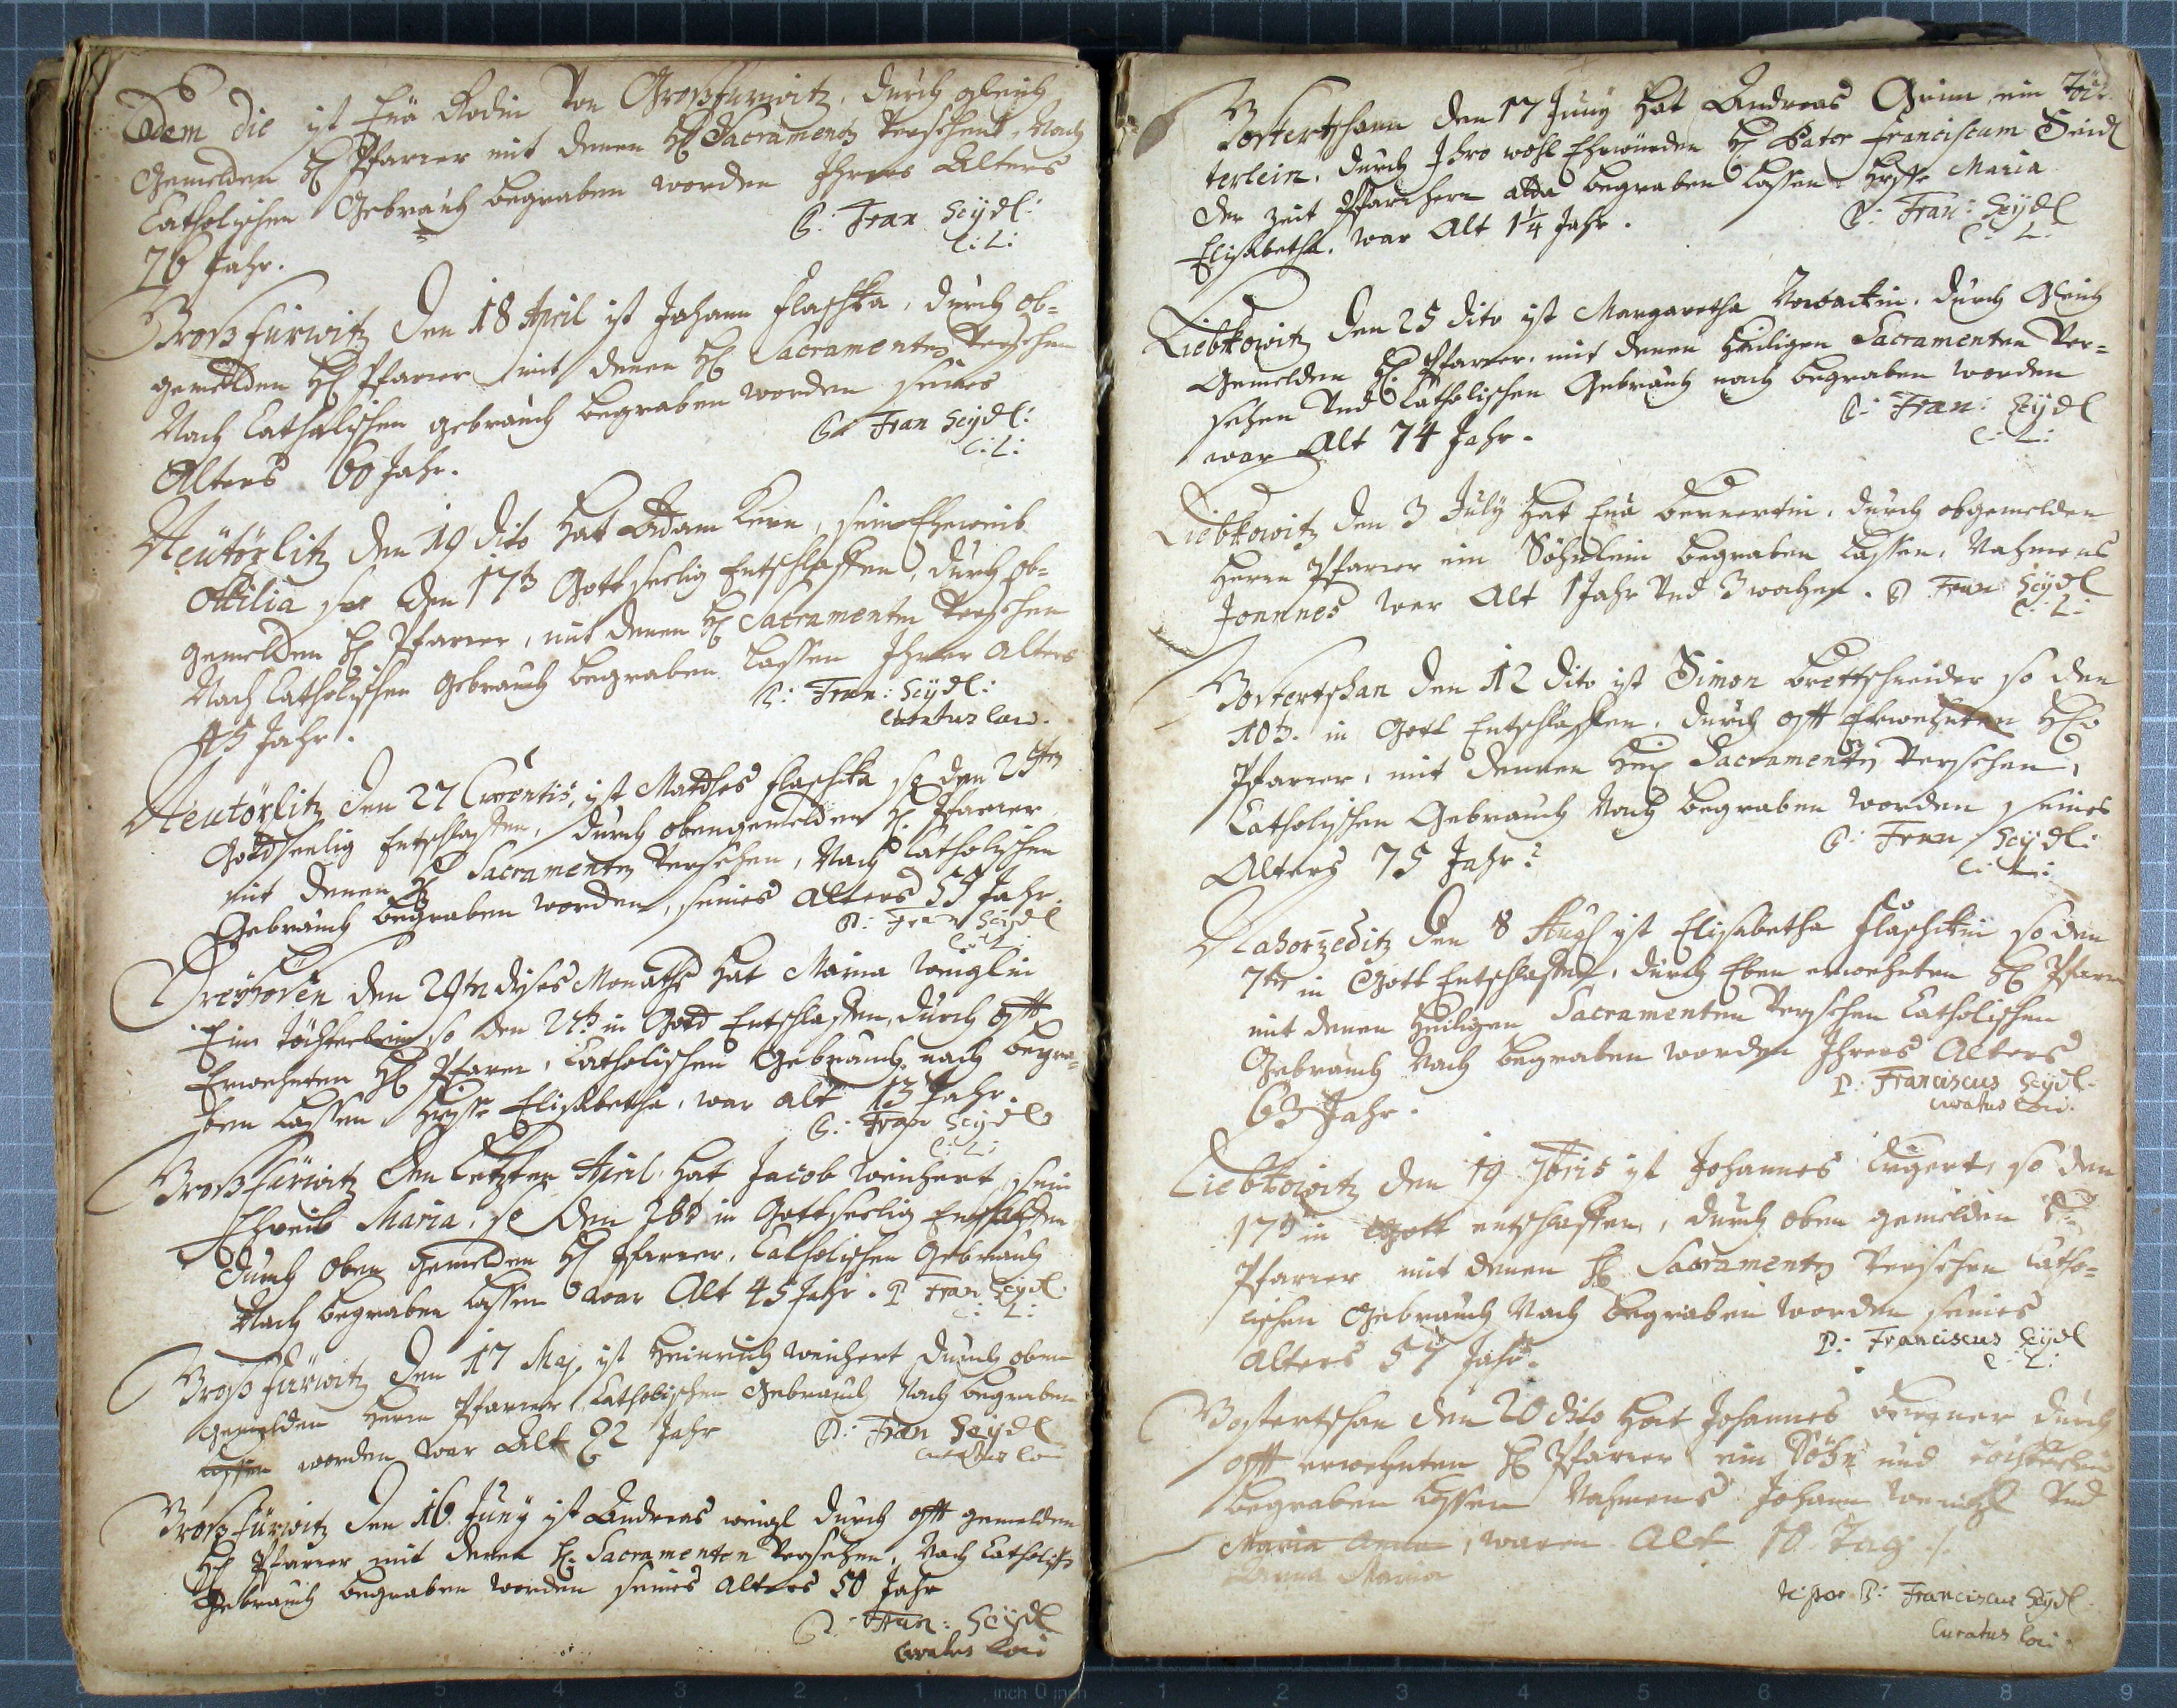 Eodem die ist Eva Rodin von Großfürwitz, durch gleich
Gemelden H. Pfarrer mit denen H. Sacramenten versehent, Nach
Catholischen Gebrauch begraben worden Ihres Alters
70 Jahr.
P: Fran Seydl:
C: L:
Großfürwitz den 18 April ist Johann Flaschka, durch ob=
gemelden H. Pfarrer mit denen H. Sacramenten versehen
Nach Catholischen gebrauch begraben worden seines
Alters 60 Jahr.
P: Fran Seydl:
C: L:
Neütörlitz den 19 dito hat Adam Kern, sein Eheweib
Ottilia so den 17t Gottseelig Entschlaffen, durch ob=
gemelden H. Pfarrer, mit denen H. Sacramenten versehen
Nach Catholischen Gebrauch begraben lassen Ihrer Alters
45 Jahr.
P: Fran: Seydl:
Curatus Loci.
Neutörlitz den 27 Currentis, ist Mathes Flaschka so den 25ten
Gottseelig Entschlaffen, durch obengemelden H. Pfarrer
mit denen H. Sacramenten versehen, Nach Catholischen
Gebrauch begraben worden, seines Alters 55 Jahr.
P: Fran Seydl
C: L:
Dreyhöven den 29ten dises Monaths hat Maria Weiglin
Ein Töchterlein so den 27t in Gott Entschlaffen, durch offt
Erwehnten H. Pfarrer, Catholischen Gebrauch nach begra=
ben lassen, hiesse Elisabetha, war alt 13 Jahr.
P: Fran Seydl
C: L:
Großfürwitz den Letzten April hat Jacob Weichert sein
Eheweib Maria, so den 28t in Gottseelig Entschlaffen
durch oben Gemelden H. Pfarrer, Catholischen Gebrauch
Nach begraben lassen war Alt 45 Jahr. P Fran Seydl
C: L:
Großfürwitz den 17 May ist Heinrich Weichert durch oben
gemelden Herrn Pfarrer Catholischen Gebrauch Nach begraben
lassen worden war Alt 82 Jahr
P: Fran Seydl
Curatus Loci
Großfürwitz den 16. Juny ist Andreas Weigl durch offt gemelden
H. Pfarrer mit denen H. Sacramenten versehen, Nach Catholisch
Gebrauch begraben worden seines Alters 50 Jahr
P: Fran: Seydl
Curatus Loci
Wostertschann den 17 Juny hat Andreas Grim ein Töch
terlein, durch Ihro wohl Ehrwürden H. Pater Franciscum Seidl
der Zeit Pfarrherrn alda begraben lassen, hiesse Maria
Elisabetha, war Alt 1 1/4 Jahr.
P: Fran: Seydl
C: L:
Liebkowitz den 25 dito ist Margaretha Nowackin, durch Gleich
Gemelden H. Pfarrer, mit denen Heiligen Sacramenten ver=
sehen und Catholischen Gebrauch nach begraben worden
war Alt 74 Jahr.
P: Fran: Seydl
C: L:
Liebkowitz den 3 July hat Eva Bernertin, durch obgemelden
Herrn Pfarrer ein Söhnlein begraben lassen, Nahmens
Joannes war Alt 1 Jahr und 3 wochen. P Fran Seydl
C: L:
Wostertschan den 12 dito ist Simon Brettschneider so den
10t. in Gott Entschlaffen, durch offt Erwehnten H.
Pfarrer, mit denen Heil. Sacramenten versehen,
Catholischen Gebrauch Nach begraben worden seines
Alters 75 Jahr.
P: Fran Seydl:
C: L:
Nahorzeditz den 8 Aug ist Elisabetha Flaschkin so den
7te in Gott Entschlaffen, durch Eben erwehnten H. Pfarrer
mit denen Heiligen Sacramenten versehen Catholischen
Gebrauch Nach begraben worden Ihres Alters
63 Jahr.
P: Franciscus Seydl.
Curatus Loci.
Liebkowitz den 19 7bris ist Johannes Lugert, so den
17t in Gott entschlaffen, durch oben gemelden H.
Pfarrer mit denen H. Sacramenten versehen Catho=
lischen Gebrauch Nach begraben worden seines
Alters 57 Jahr.
P: Franciscus Seydl
C: L:
Wostertschan den 20 dito hat Johannes Bergner durch
offt erwehnten H. Pfarrer ein Söhn und Töchterlein
begraben lassen Nahmens Johann und
Maria Anna, waren Alt 10 Tag.
Anna Maria
P: Franciscus Seydl
Curatus Loci.